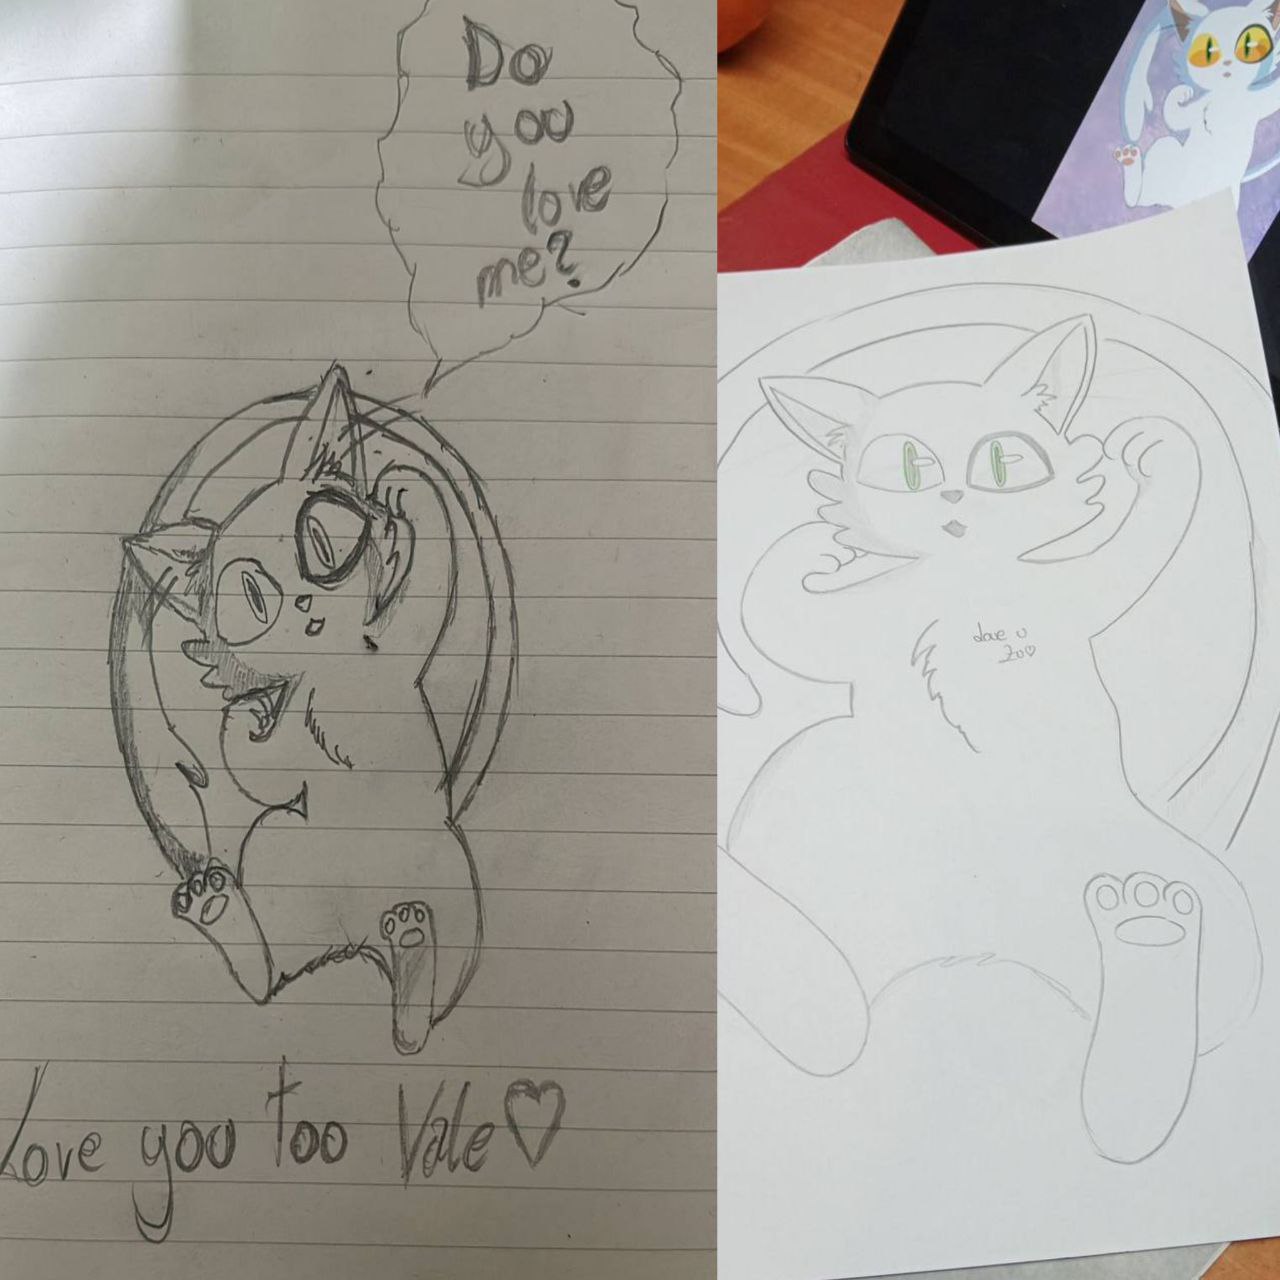 Do
you
love
me?
Love you too Vale♡
Love u
Zu♡